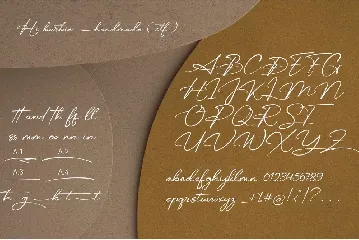 handmade (otf)
tt and th ff ll
ss mm oo nn in
A1 A2
A3 A4
h_g_ht_t
ABCDEFG
HIJKLMN
OPQRST
UVWXYZ
abcdefghijklmn 0123456789
opqrstuvwxyz _+#@/!?...